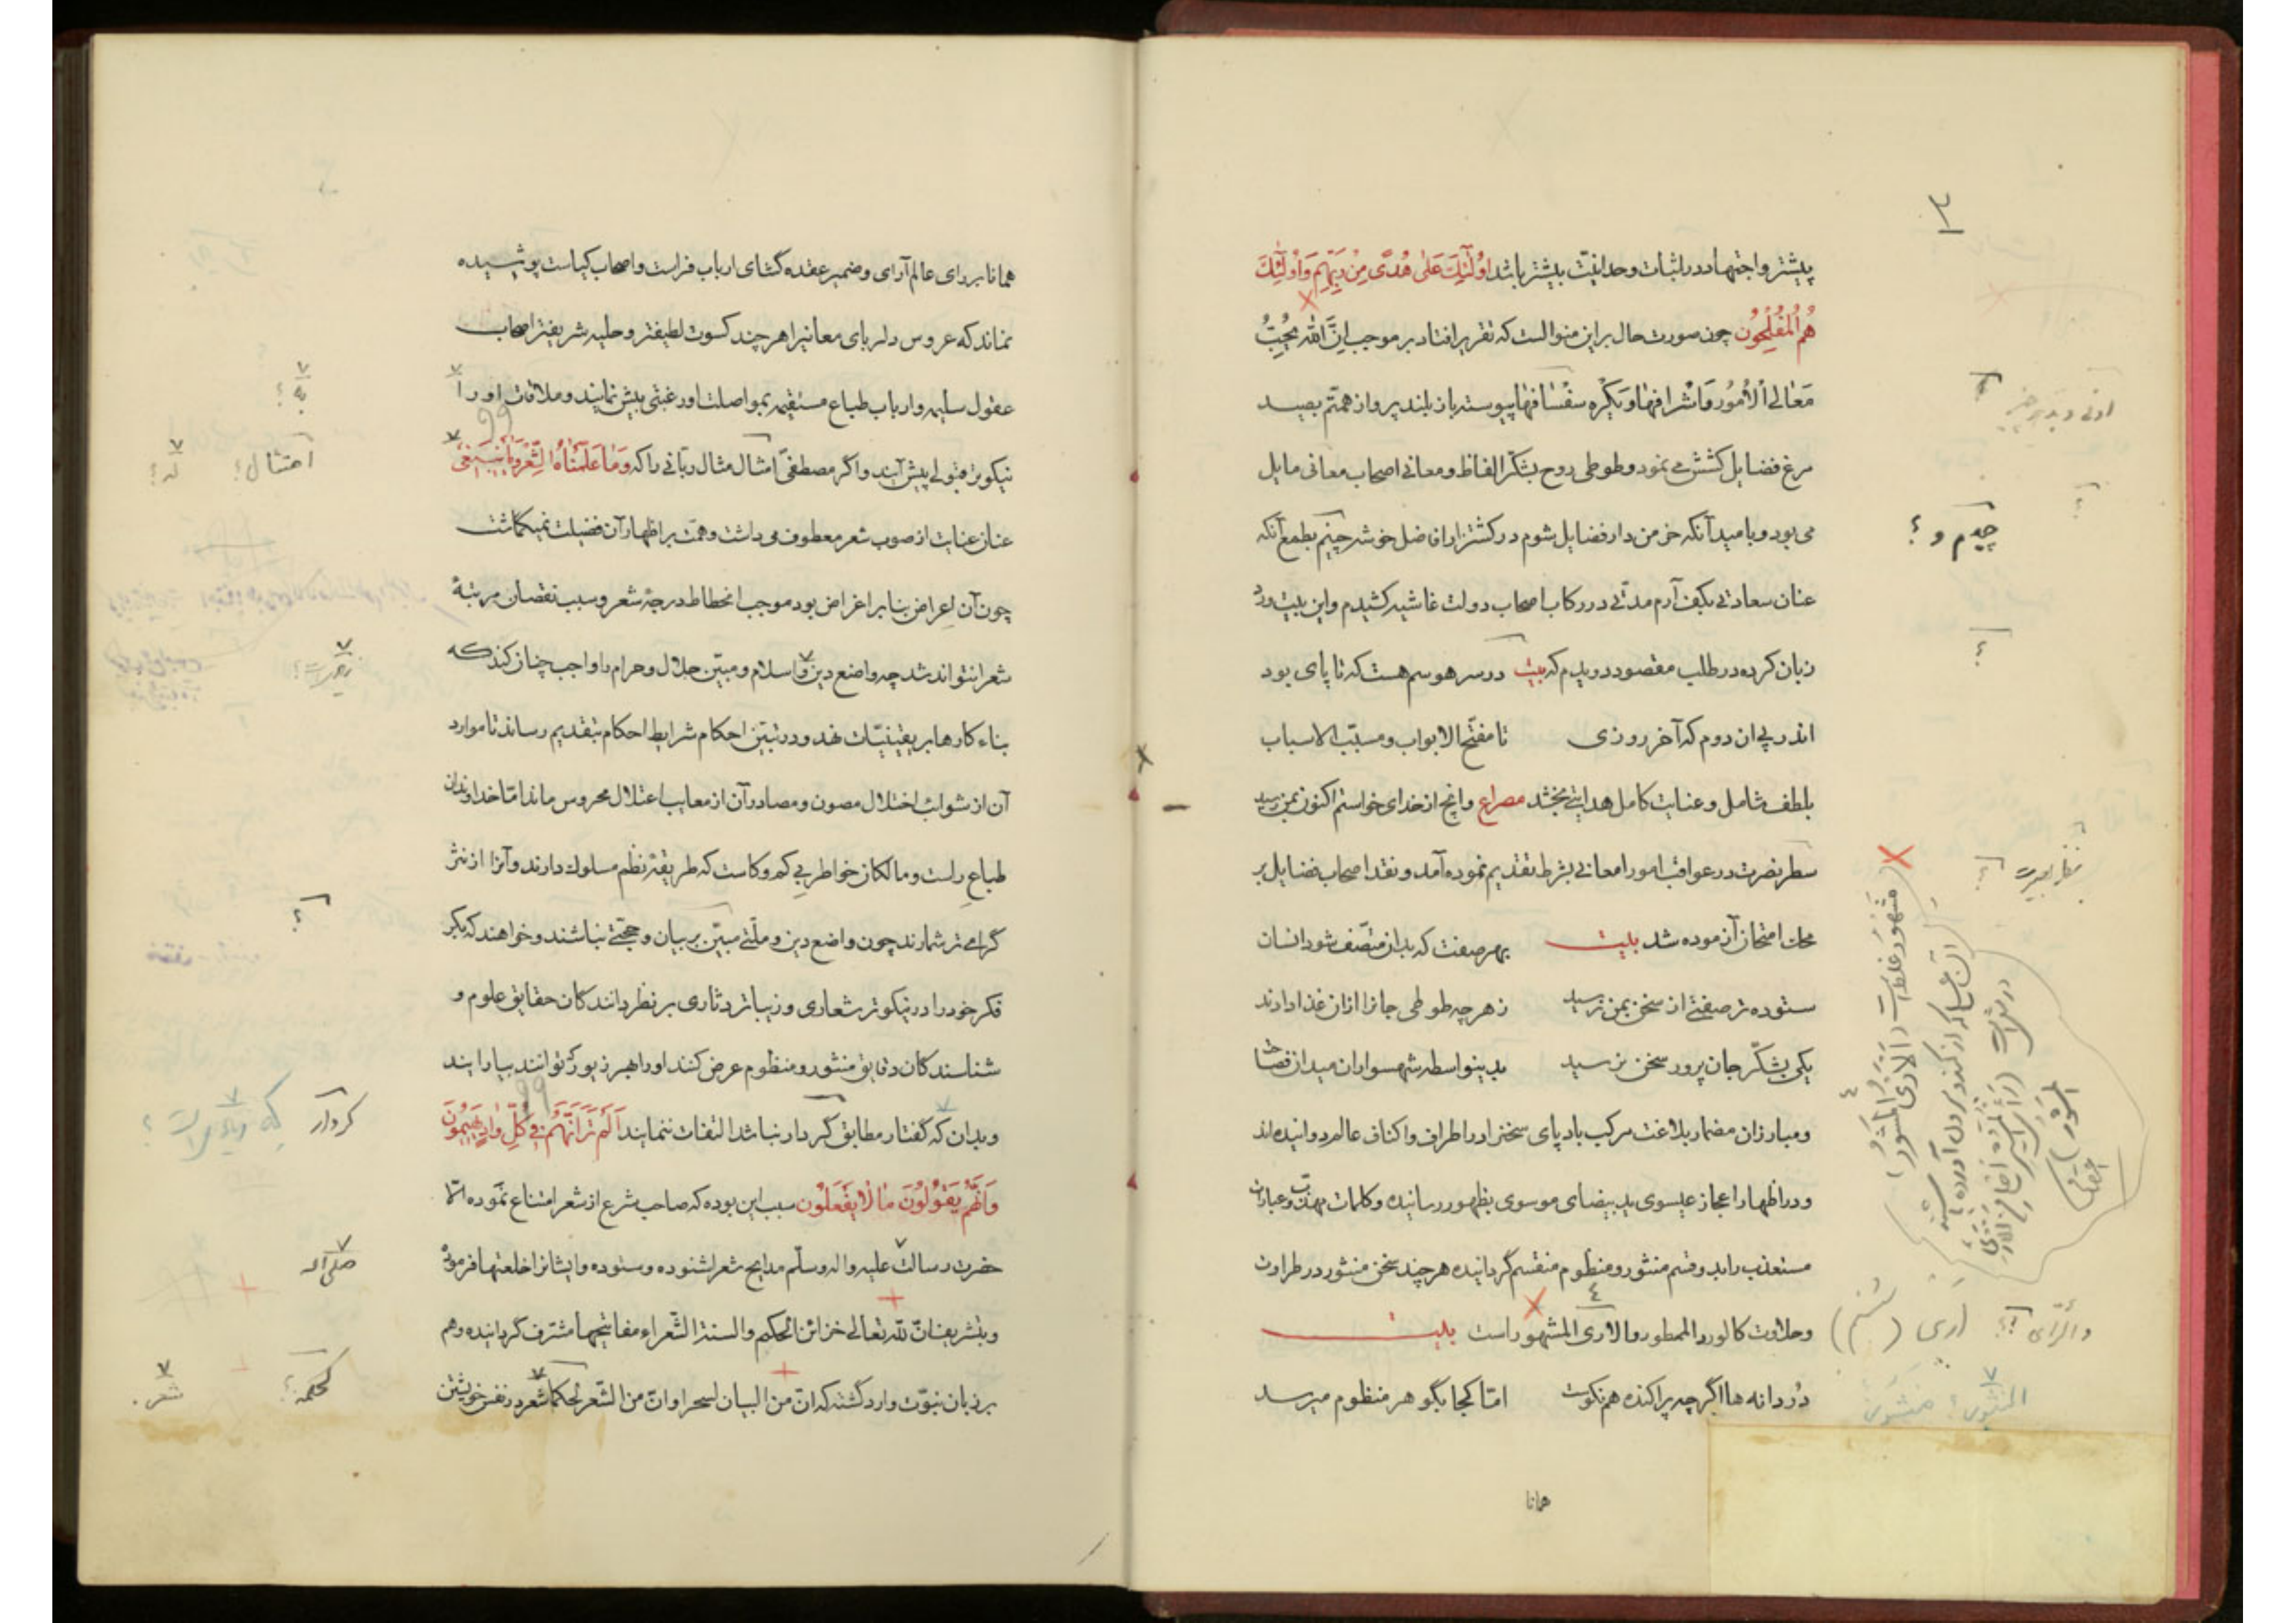 ۳
پیشتر و اجتهاد در اثبات وحدانیّت بیشتر باشد اُولٰئِکَ عَلیٰ هُدًی مِنْ رَبِّهِمْ وَ اُولٰئِکَ
هُمُ الْمُفْلِحُون چون صورت حال بر این منوالست که تقریر افتاد بر موجب اِنَّ اللّٰهَ یُحِبُّ
مَعٰالیِ الْاُمُورِ وَ اَشْرافَهٰا وَ یَکْرَهُ سَفْسٰافَهٰا پیوسته باز بلند پرواز همتم بصید
مرغ فضایل کشش می نمود و طوطی روح بشکّر الفاظ و معانی اصحاب معانی مایل
می بود و بامید آنکه خرمن دار فضایل شوم در کشتزار افاضل خوشه چینم بطمع آنکه
عنان سعادتی بکف آرم مدتی در رکاب اصحاب دولت غاشیه کشیدم و این بیت ورد
زبان کرده در طلب مقصود دویدم که بیت در سر هوسم هست که تا پای بود
اندر پی ان دوم که آخر روزی تا مفتّح الابواب و مسبّب الاسباب
بلطف شامل و عنایت کامل هدایتی بخشد مصراع وانچ از خدای خواستم اکنون بمن رسید
سطر بصرت در عواقب امور امعانی بشرط تقدیم نموده آمد و نقد اصحاب فضایل بر
محک امتحان آزموده شد بیت بهر صفت که بدان متّصف شود انسان
ستوده تر صفتی از سخن بمن نرسید ز هر چه طوطی جانرا ازان غذا دادند
یکی بشکّر جان پرور سخن نرسید بدینواسطه شهسواران میدان فصاحت
و مبارزان مضمار بلاغت مرکب باد پای سخنرا در اطراف و اکناف عالم دوانیده اند
و در اظهار اعجاز عیسوی ید بیضای موسوی بظهور رسانیده و کلمات مهذّب و عبارات
مستعذب را بدو قسم منثور و منظوم منقسم گردانیده هر چند سخن منثور در طراوت
و حلاوت کالورد الممطور و الاری المشهور است بیت
دُردانه ها اگر چه پراکنده هم نکوست امّا کجا بگوهر منظوم میرسد
همانا
چیدم و ؟
نظر بصیرت
مشهور غلط است
اری (شنم)
همانا بر رای عالم آرای و ضمیر عقده گشای ارباب فراست و اصحاب کیاست پوشیده
نماند که عروس دلربای معانیرا هر چند کسوت لطیفتر و حلیه شریفتر اصحاب
عقول سلیمه و ارباب طباع مستقیمه بمواصلت او رغبتی بیش نمایند و ملاقات او را
نیکوتر قبولی پیش آیند و اگر مصطفیٰ امتثال مثال ربّانی را که وَمٰا عَلَّمْنٰاهُ الشِّعْرَ وَمٰا یَنْبَغی
عنان عنایت از صوب شعر معطوف می داشت و همّت بر اظهار آن فضیلت نمیگماشت
چون آن اِعراض بنا بر اغراض بود موجب انحطاط درجۀ شعر و سبب نقصان مرتبۀ
شعرا نتواند شد چه واضع دین و اسلام و مبیّن حلال و حرام را واجب چنان کند که
بناء کارها بر یقینیّات نهد و در تبیّن احکام شرایط احکام بتقدیم رساند تا موارد
آن از شوائب اختلال مصون و مصادر آن از معایب اعتلال محروس ماند امّا خداوندان
طباعِ راست و مالکان خواطر بی کم و کاست که طریقۀ نظم مسلوک دارند و آنرا از نثر
گرامی تر شمارند چون واضع دین و ملّتی مبیّن بر بیان و حجّتی نباشند و خواهند که بکر
فکر خود را در نیکوتر شعاری و زیباتر دثاری بر نظر دانندکان حقایق علوم و
شناسندکان دقایق منثور و منظوم عرض کنند او را بهر زیور که توانند بیارایند
و بدان که گفتار مطابق کردار نباشد التفات ننمایند اَلَمْ تَرَ اَنَّهُمْ فِی کُلِّ وٰادٍ یَهیمُونَ
وَاَنَّهُمْ یَقُولُونَ مٰا لٰا یَفْعَلُونَ سبب این بوده که صاحب شرع از شعر امتناع نموده امّا
حضرت رسالت علیه و اله و سلّم مدایح شعرا شنوده و ستوده و ایشانرا خلعتها فرموده
و بتشریف انّ للّه تعالی خزائن الحکم و السنة الشّعراء مفاتیحها مشرّف گردانیده و هم
بر زبان نبوّت وارد گشته که انّ من البیان لسحرا و انّ من الشّعر لحکما شعر در نفس خویشتن
به ؟
امتثال ؟ له ؟
کردار
صلی اله
لحکمه ؟ شعر